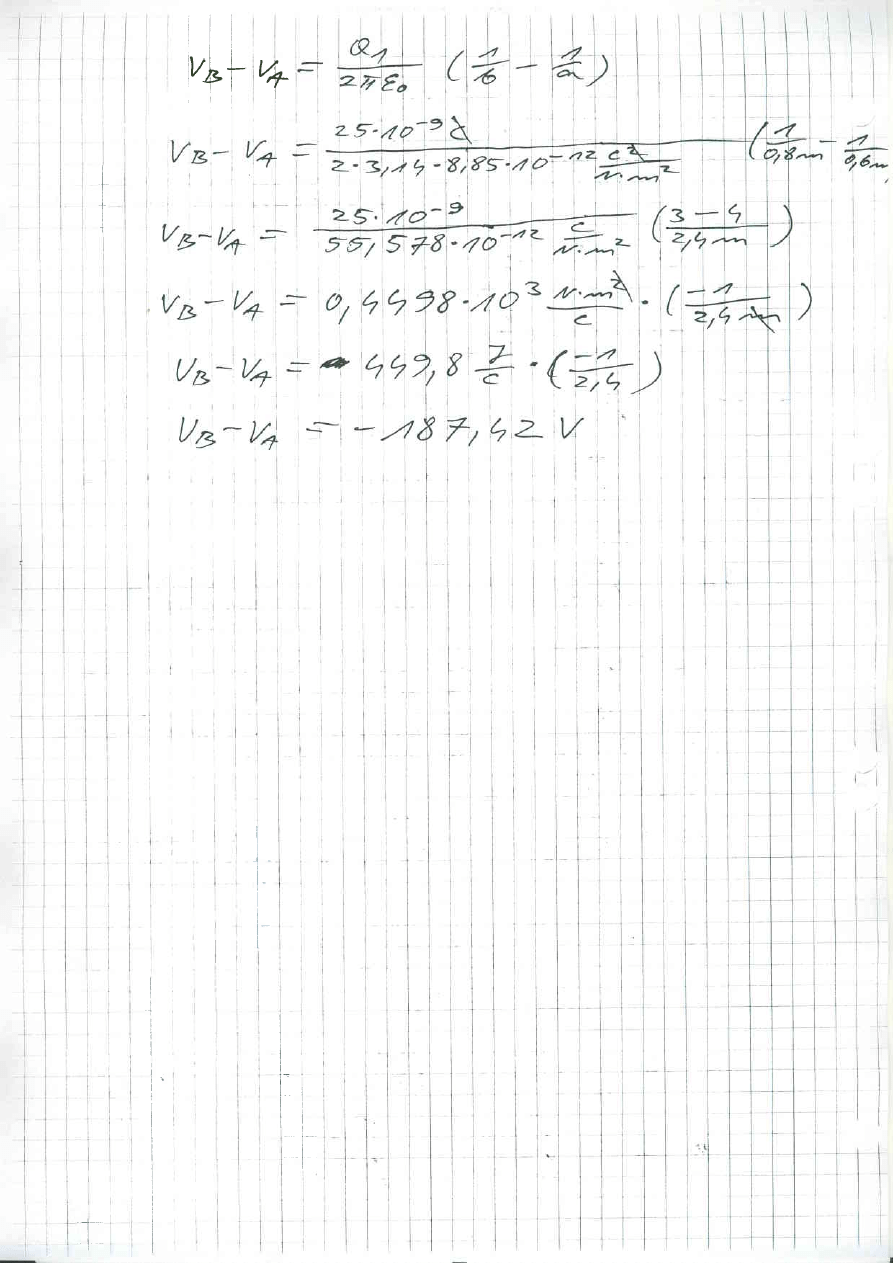 V_B - V_A = Q_1 / 2πε_0 (1/b - 1/a)
V_B - V_A = 25·10^-9 C / 2·3,14·8,85·10^-12 C^2/N·m^2 (1/0,8m - 1/0,6m
V_B - V_A = 25·10^-9 / 55,578·10^-12 C/N·m^2 (3 - 4 / 2,4m)
V_B - V_A = 0,4498·10^3 N·m^2/C · (-1/2,4m)
V_B - V_A = 449,8 J/C · (-1/2,4)
V_B - V_A = -187,42 V